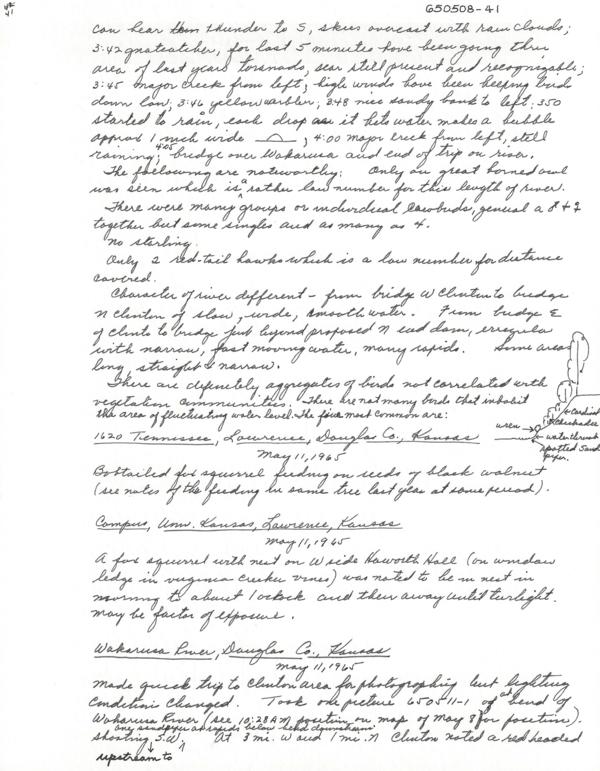 650508-41
can hear thunder to S, skies overcast with rain clouds;
3:42 gnatcatcher, for last 5 minutes have been going thru
area of last years tornado, scar still present and recognizable;
3:45 major creek from left; high winds have been keeping birds
down low; 3:46 yellow warbler; 348 nice sandy bank to left; 350
started to rain, each drop as it hits water makes a bubble
approx 1 inch wide ; 4:00 major creek from left, still
raining; 4:05 bridge over Wakarusa and end of trip on river.
The following are noteworthy: Only one great horned owl
was seen which is a rather low number for this length of river.
There were many groups or individual cowbirds, general a ♂ + ♀
together but some singles and as many as 4.
No starling.
Only 2 red-tail hawks which is a low number for distance
covered.
Character of river different - from bridge W Clinton to bridge
N Clinton of slow, wide, smooth water. From bridge E
of Clinto to bridge just beyond proposed N end dam, irregular
with narrow, fast moving water, many rapids. Some areas
long, straight & narrow.
There are definitely aggregates of birds not correlated with
vegetation communities. There are not many birds that inhabit
the area of fluctuating water level. The five most common are:
wren
cardinal
chickadee
waterthrush
spotted Sand
piper.
1620 Tennessee, Lawrence, Douglas Co., Kansas
May 11, 1965
Bobtailed fox squirrel feeding on seeds of black walnut
(see notes of the feeding in same tree last year at same period).
Campus, Univ. Kansas, Lawrence, Kansas
May 11, 1965
A fox squirrel with nest on W side Haworth Hall (on window
ledge in virginia creeker vines) was noted to be in nest in
morning to about 1 oclock and then away until twilight.
May be factor of exposure.
Wakarusa River, Douglas Co., Kansas
May 11, 1965
Made quick trip to Clinton area for photographing but lighting
condition changed. Took one picture 650511-1 of at bend of
Wakarusa River (see 10:28 AM position on map of May 8 for position).
one sandpiper at rapids below bend downstream
shooting S.W. At 3 mi. W and 1 mi. N Clinton noted a red headed
upstream to